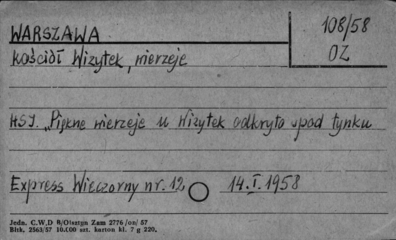 WARSZAWA
108/58
OZ
Kościół Wizytek, nierzeje
HSJ. „Piękne nierzeje u Wizytek odkryto spod tynku
Express Wieczorny nr. 12 14.I.1958
Jedn. C.W.D B/Olsztyn Zam 2776/on/57
Bltk. 2563/57 10.000 szt. karton kl. 7 g 220.